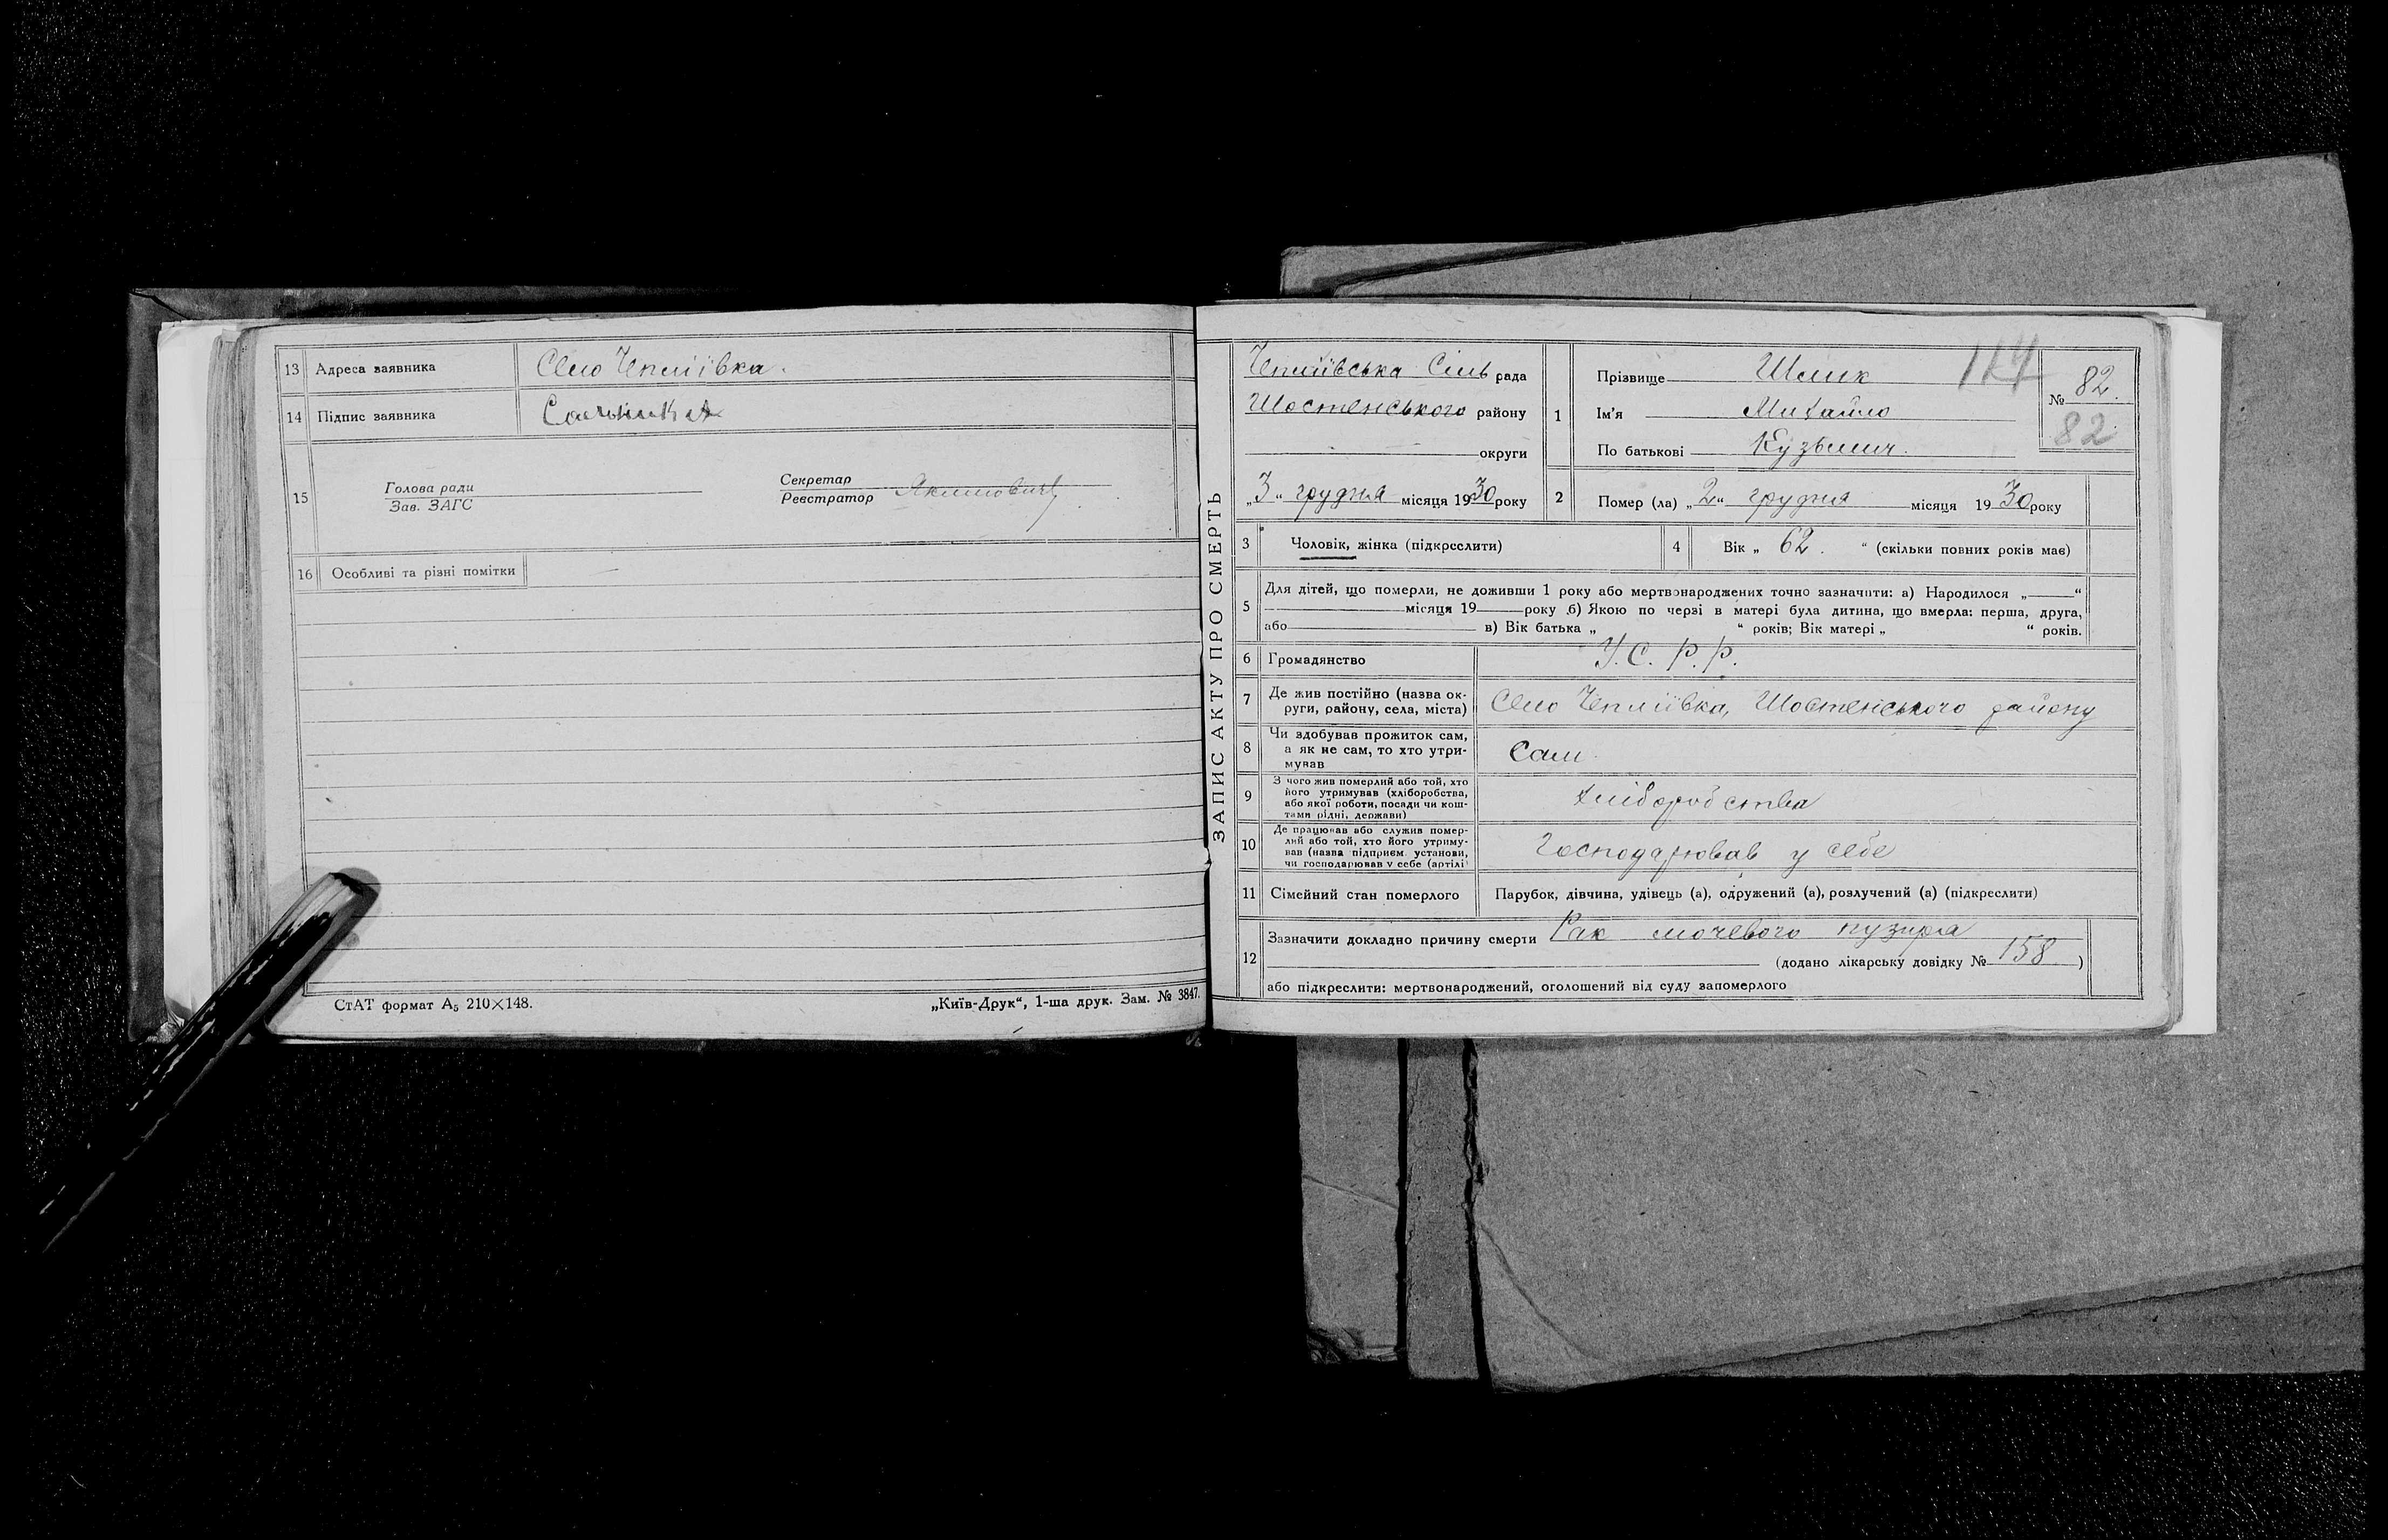 13 Адреса заявника Село Чепліївка.
14 Підпис заявника
15 Голова ради
Зав. ЗАГС
Секретар
Реєстратор Якимович
16 Особливі та різні помітки
СтАТ формат А₅ 210×148.
„Київ-Друк“, 1-ша друк. Зам. № 3847.
ЗАПИС АКТУ ПРО СМЕРТЬ
Чепліївська Сіль рада
Шостенського району
округи
„3“ грудня місяця 1930 року
1 Прізвище
Ім'я Михайло
По батькові Кузьмич.
№ 82.
82
2 Помер (ла) „2“ грудня місяця 1930 року
3 Чоловік, жінка (підкреслити)
4 Вік „ 62. “ (скільки повних років має)
5 Для дітей, що померли, не доживши 1 року або мертвонароджених точно зазначити: а) Народилося „ “
місяця 19 року б) Якою по черзі в матері була дитина, що вмерла: перша, друга,
або в) Вік батька „ “ років; Вік матері „ “ років.
6 Громадянство У. С. Р. Р.
7 Де жив постійно (назва ок-
руги, району, села, міста) Село Чепліївка, Шостенського району
8 Чи здобував прожиток сам,
а як не сам, то хто утри-
мував Сам
9 З чого жив померлий або той, хто
його утримував (хліборобства,
або якої роботи, посади чи кош-
тами рідні, держави) Хліборобства
10 Де працював або служив помер-
лий або той, хто його утриму-
вав (назва підприєм. установи,
чи господарював у себе (артілі) Господарював у себе
11 Сімейний стан померлого Парубок, дівчина, удівець (а), одружений (а), розлучений (а) (підкреслити)
12 Зазначити докладно причину смерти Рак мочевого пузиря
(додано лікарську довідку № 158 )
або підкреслити: мертвонароджений, оголошений від суду запомерлого